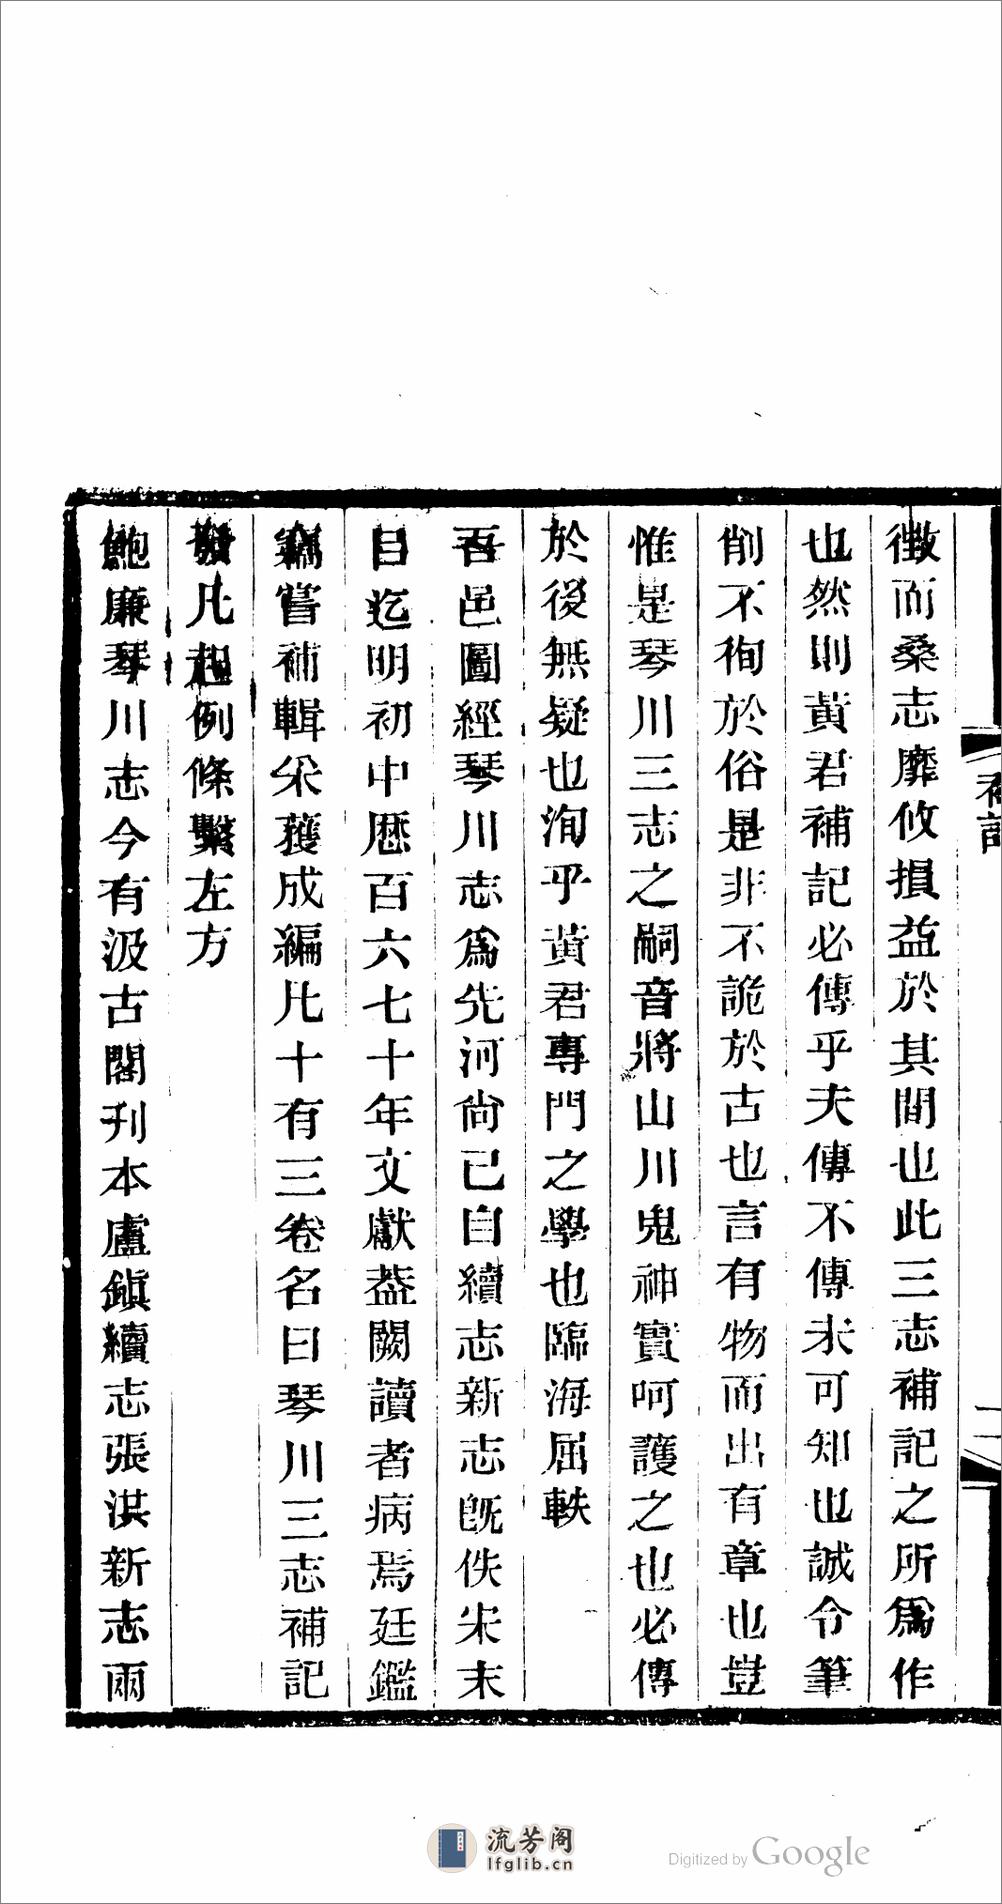 補記
二
徴而桑志靡攸損益於其間也此三志補記之所爲作
也然則黃君補記必傳乎夫傳不傳未可知也誠令筆
削不徇於俗是非不詭於古也言有物而出有章也豈
惟是琴川三志之嗣音將山川鬼神實呵護之也必傳
於後無疑也洵乎黃君專門之學也臨海屈軼
吾邑圖經琴川志爲先河尙已自續志新志旣佚宋末
目迄明初中歷百六七十年文獻葢闕讀者病焉廷鑑
竊嘗補輯采蒦成編凡十有三卷名曰琴川三志補記
發凡起例條繫左方
鮑廉琴川志今有汲古閣刋本盧鎮續志張洪新志兩
流芳阁
lfglib.cn
Digitized by Google